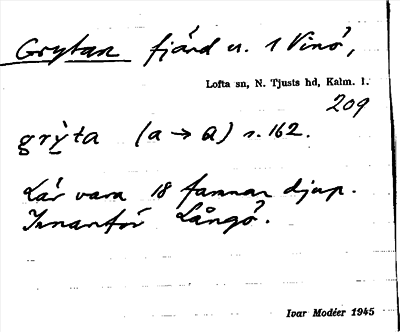 Grytan fjärd n. 1 Vinö,
Lofta sn, N. Tjusts hd, Kalm. l.
209
grỳta (a → a) s. 162.
Lär vara 18 famnar djup.
Innanför Långö.
Ivar Modéer 1945